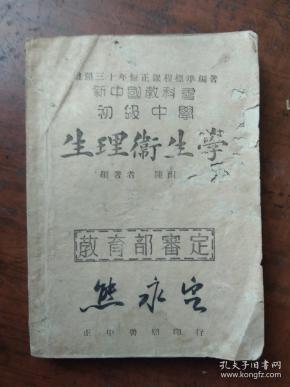 民國三十年修正課程標準編著
新中國教科書
初級中學
生理衛生學
編著者 陳雨
教育部審定
熊永
正中書局印行
孔夫子旧书网